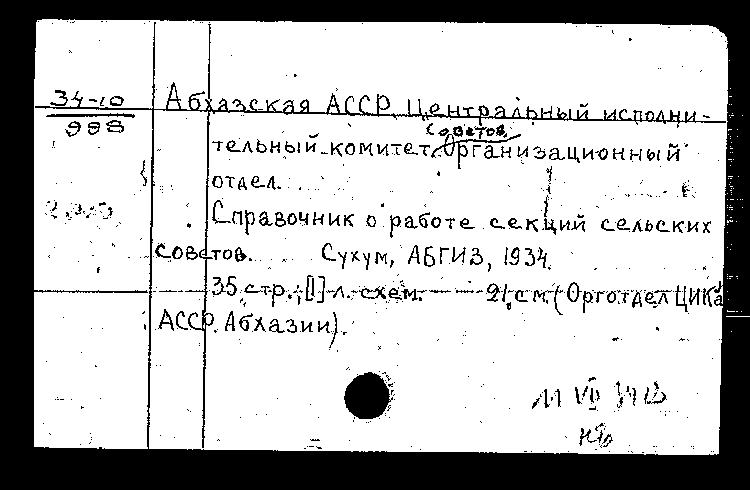 34-10
998
Абхазская АССР Центральный исполни-
Советов
тельный комитет. Организационный
отдел.
Справочник о работе секций сельских
советов. Сухум, АБГИЗ, 1934.
35 стр., [] л. схем. 21 см. (Орготдел ЦИКа
АССР Абхазии).